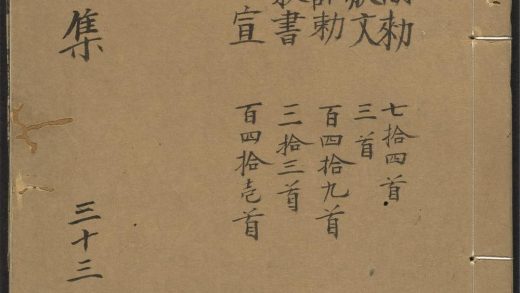 勅 七拾四首
文 三首
勅 百四拾九首
書 三拾三首
宣 百四拾壱首
集 三十三